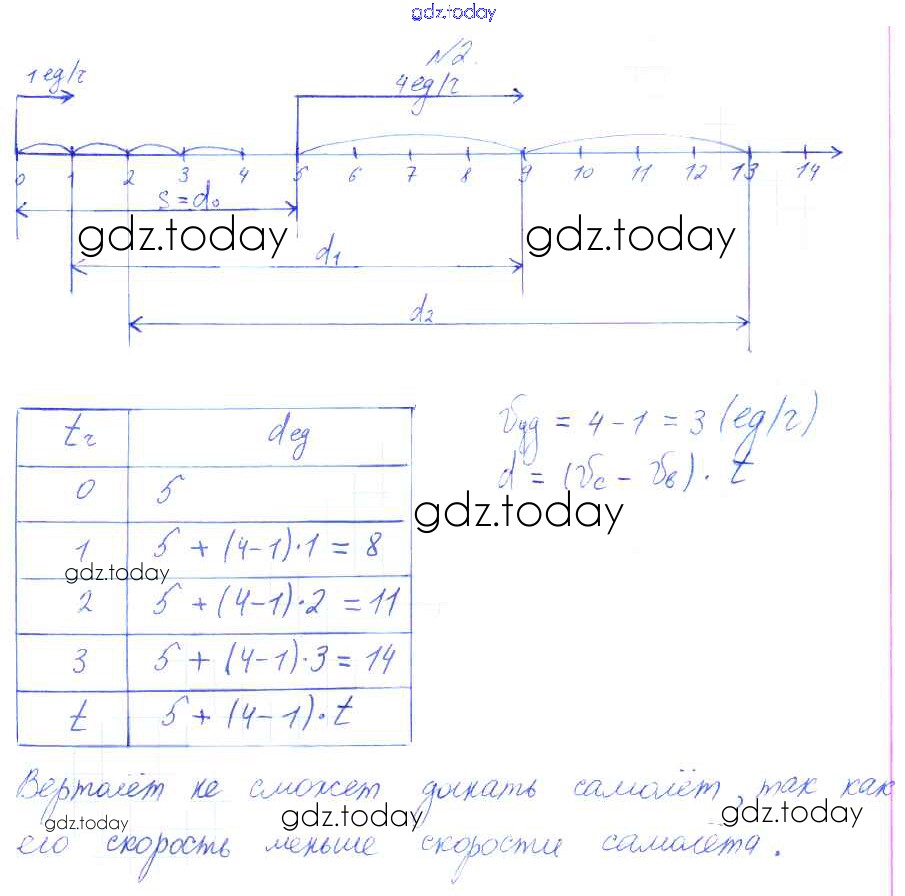 gdz.today
№2.
1 ед/г 4 ед/г
0 1 2 3 4 5 6 7 8 9 10 11 12 13 14
s = d₀
gdz.today gdz.today
d₁
d₂
tг dед
0 5
1 5 + (4-1)·1 = 8
gdz.today
2 5 + (4-1)·2 = 11
3 5 + (4-1)·3 = 14
t 5 + (4-1)·t
Vуд = 4 - 1 = 3 (ед/г)
d = (Vс - Vв) · t
gdz.today
Вертолёт не сможет догнать самолёт, так как
gdz.today gdz.today gdz.today
его скорость меньше скорости самолёта.